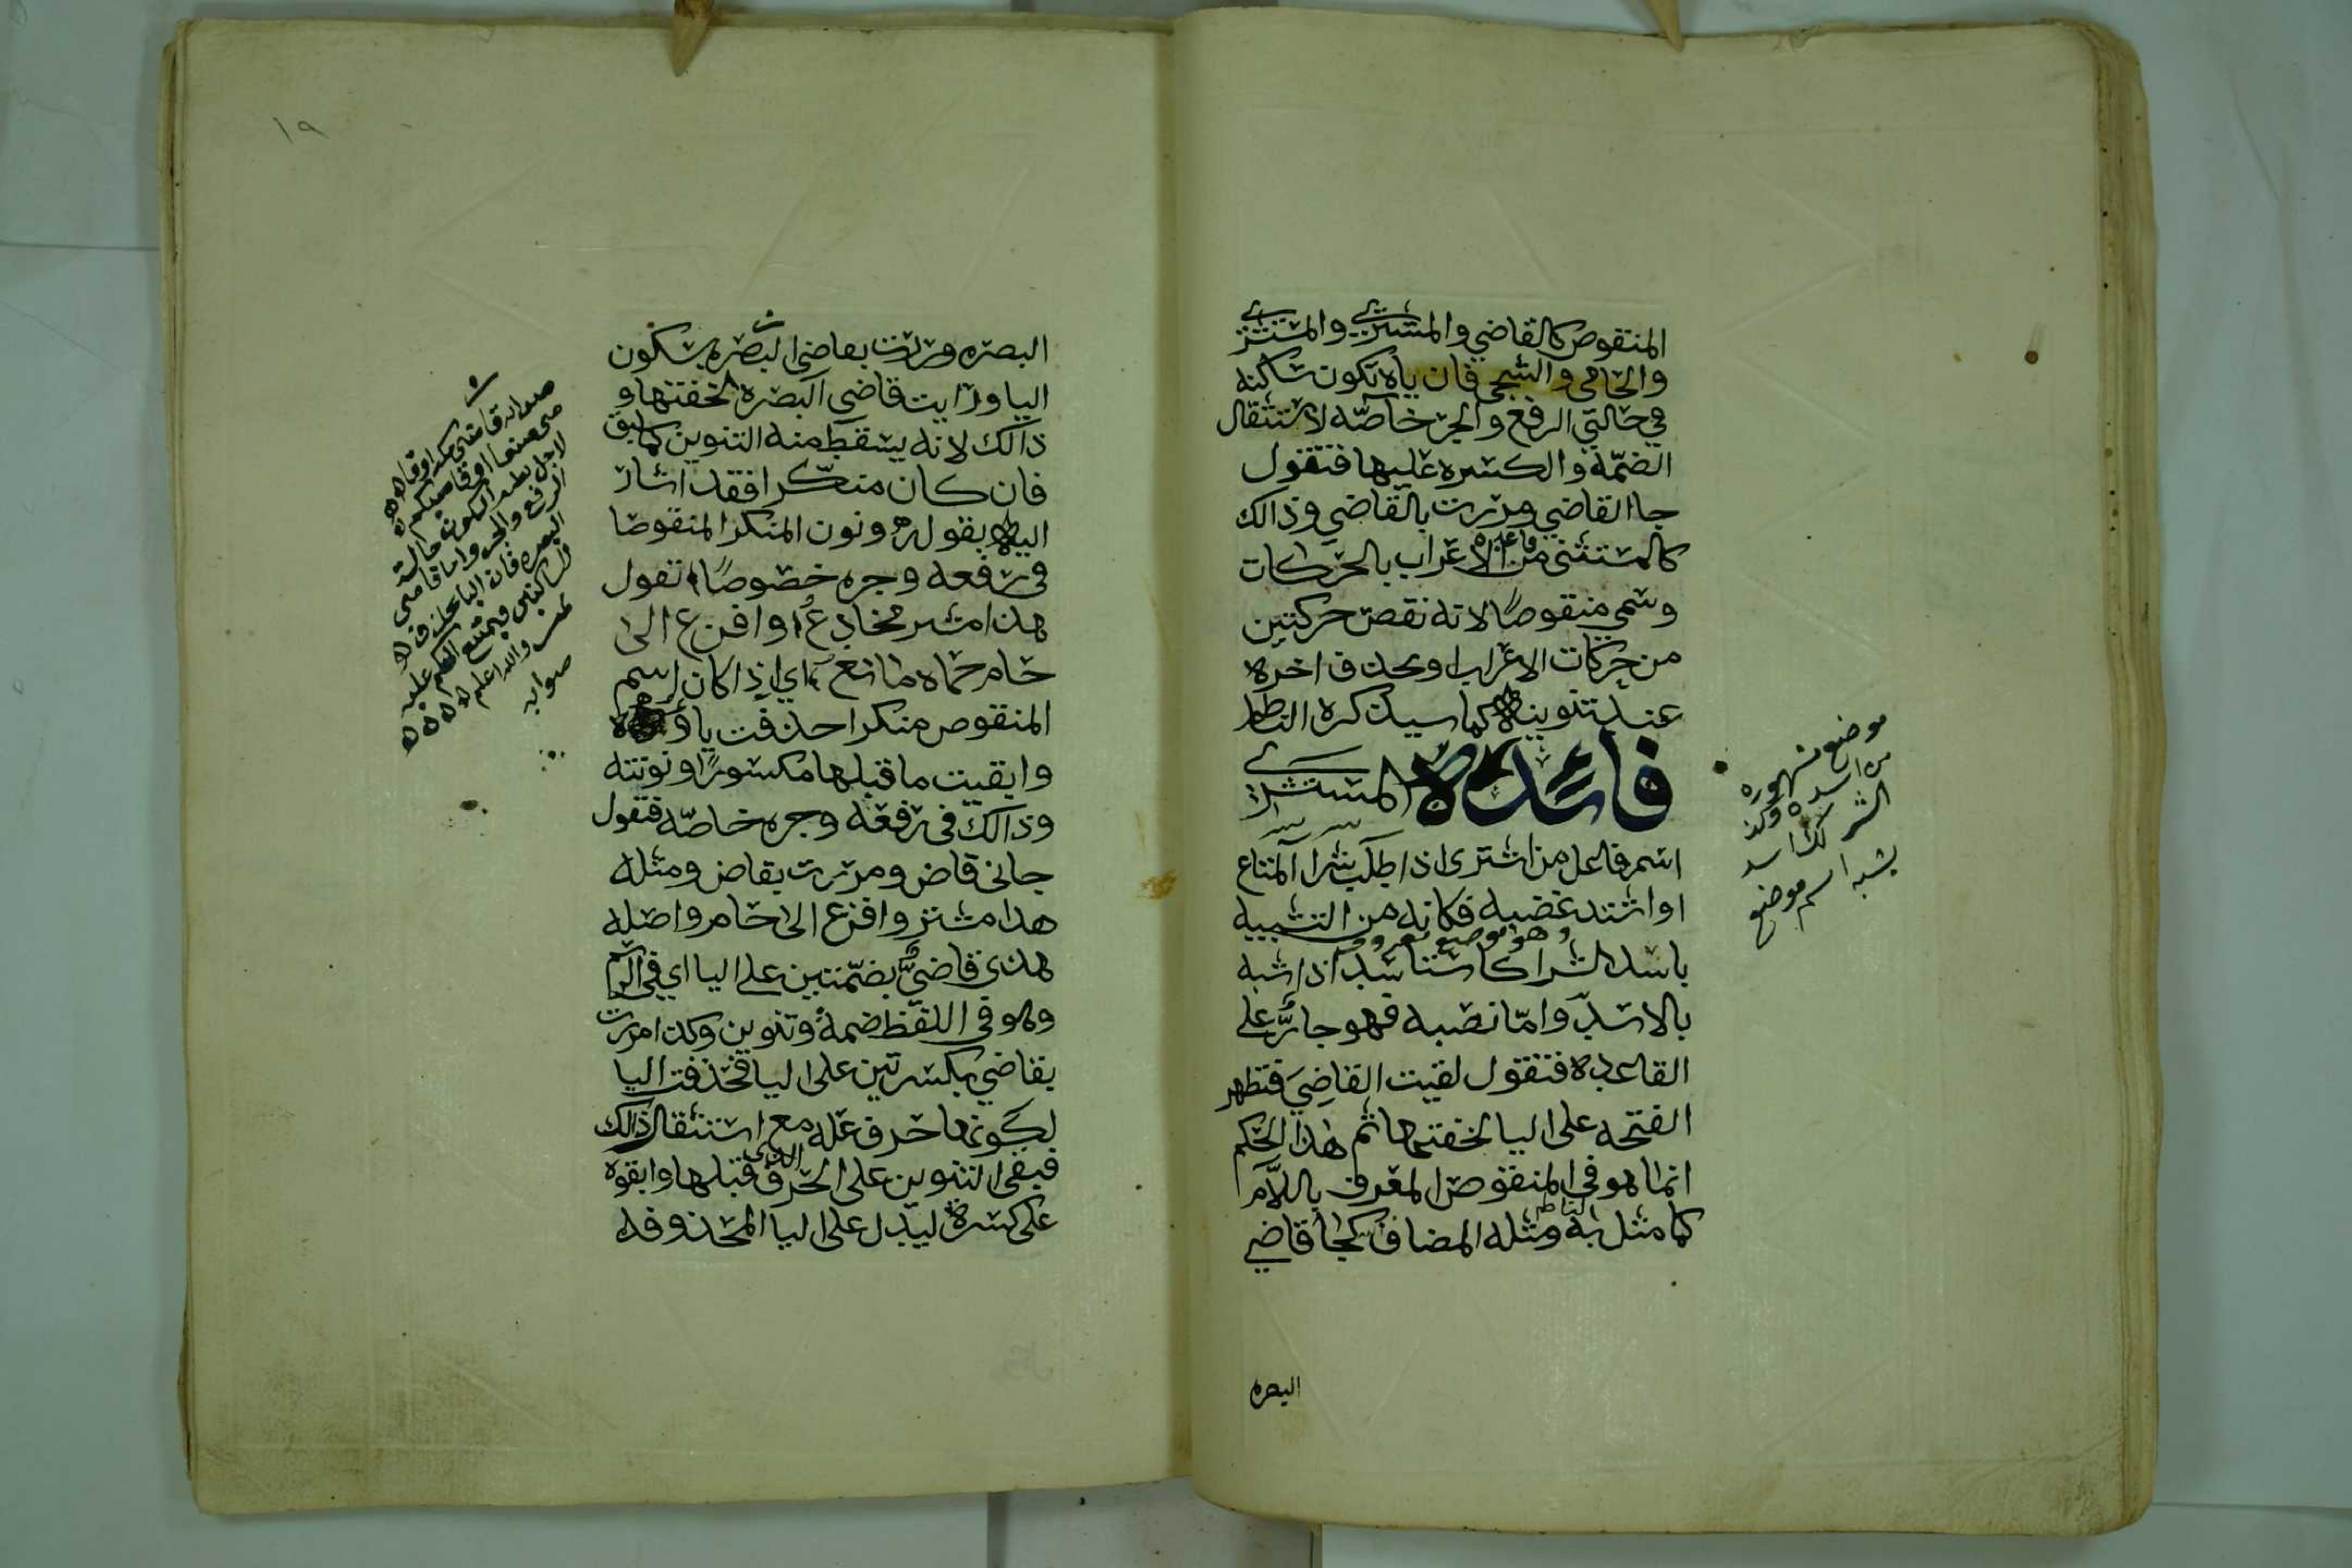 المنقوص كالقاضي والمشتري والمستشري
والحامي والشجي فان ياه تكون ساكنه
في حالتي الرفع والجر خاصّه لاستثقال
الضمّة والكسره عليها فتقول
جا القاضي ومررت بالقاضي وذالك
كالمستثنى من قاعدة الاعراب بالحركات
وسمي منقوصًا لانه نقص حركتين
من حركات الاعراب او بحذف اخره
عند تنوينه كما سيذكره الناظم
فائدة المستشري
اسم فاعل من اشترى اذا طلب شرا المتاع
او اشتد غضبه فكانه من التشبيه
باسد الشرا وهو موضع معروف كاستاسد اذا شبه
بالاسد وامّا نصبه فهو جارٍ على
القاعده فتقول لقيت القاضيَ فتظهر
الفتحه على اليا لخفتها ثم هذا الحكم
انما هو في المنقوص المعرف باللّام
كما مثل به الناظم ومثله المضاف كجا قاضي
البصره
موضع مشهوره
من اسده وكذ
الشر كاسد
يشبه اسم موضع
١٩
البصره ومررت بقاضي البصره بسكون
اليا ورايت قاضي البصره لخفتها و
ذالك لانه يسقط منه التنوين كما سبق
فان كان منكّرا فقد اشار
اليه بقوله ونون المنكر المنقوصا
في رفعه وجره خصوصًا تقول
هذا مشتر مخادعٌ وافزع الى
حام حماه مانع اي اذا كان اسم
المنقوص منكرا حذفت ياؤه
وابقيت ما قبلها مكسورًا ونونته
وذالك في رفعه وجره خاصّه فتقول
جاني قاض ومررت بقاض ومثله
هذا مشتر وافزع الى حام واصله
هذي قاضيٌ بضمّتين على اليا اي في الرسم
وهو في اللفظ ضمةٌ وتنوين وكذا مررت
بقاضي بكسرتين على اليا فحذفت اليا
لكونها حرف علّه مع استثقال ذالك
فبقى التنوين على الحرف الذي قبلها وابقوه
على كسره ليدل على اليا المحذوفه
صوابه قاضي مكه او قاضي
صنعا او قاضيكم
لاجل يظهر السكون حالة
الرفع والجر واما قاضي
البصره فان اليا تحذف
للساكنين فيمتنع الحكم عليه
والله اعلم
صوابه